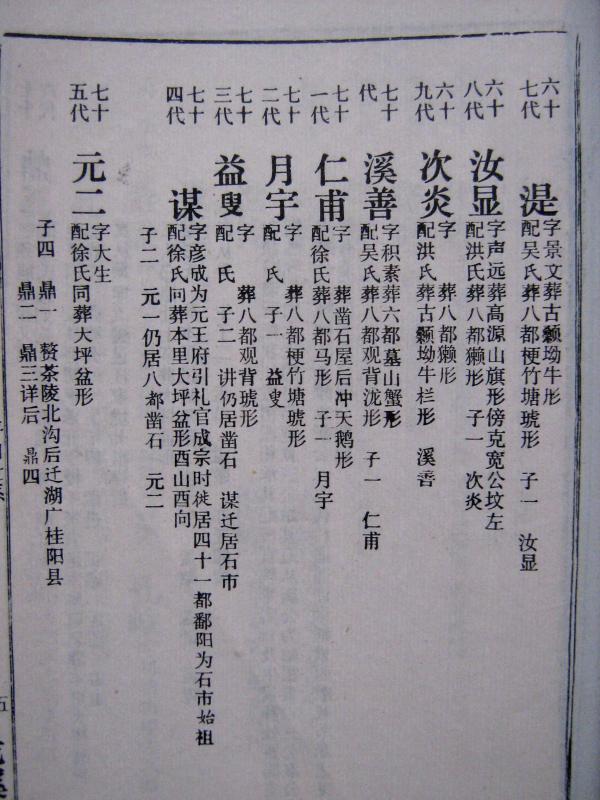 六十七代
湜
字景文葬古颡坳牛形
配吴氏葬八都梗竹塘琥形 子一 汝显
六十八代
汝显
字声远葬高源山旗形傍克宽公坟左
配洪氏葬八都獭形 子一 次炎
六十九代
次炎
字 葬八都獭形
配洪氏葬古颡坳牛栏形 溪善
七十代
溪善
字积素葬六都墓山蟹形
配吴氏葬八都观背泷形 子一 仁甫
七十一代
仁甫
字 葬凿石屋后冲天鹅形
配徐氏葬八都马形 子一 月宇
七十二代
月宇
字 葬八都梗竹塘琥形
配 氏 子一 益叟
七十三代
益叟
字 葬八都观背琥形
配 氏 子二 讲仍居凿石 谋迁居石市
七十四代
谋
字彦成为元王府引礼官成宗时徙居四十一都鄱阳为石市始祖
配徐氏同葬本里大坪盆形酉山酉向
子二 元一仍居八都凿石 元二
七十五代
元二
字大生
配徐氏同葬大坪盆形
子四 鼎一 赘茶陵北沟后迁湖广桂阳县
鼎二 鼎三详后 鼎四
五